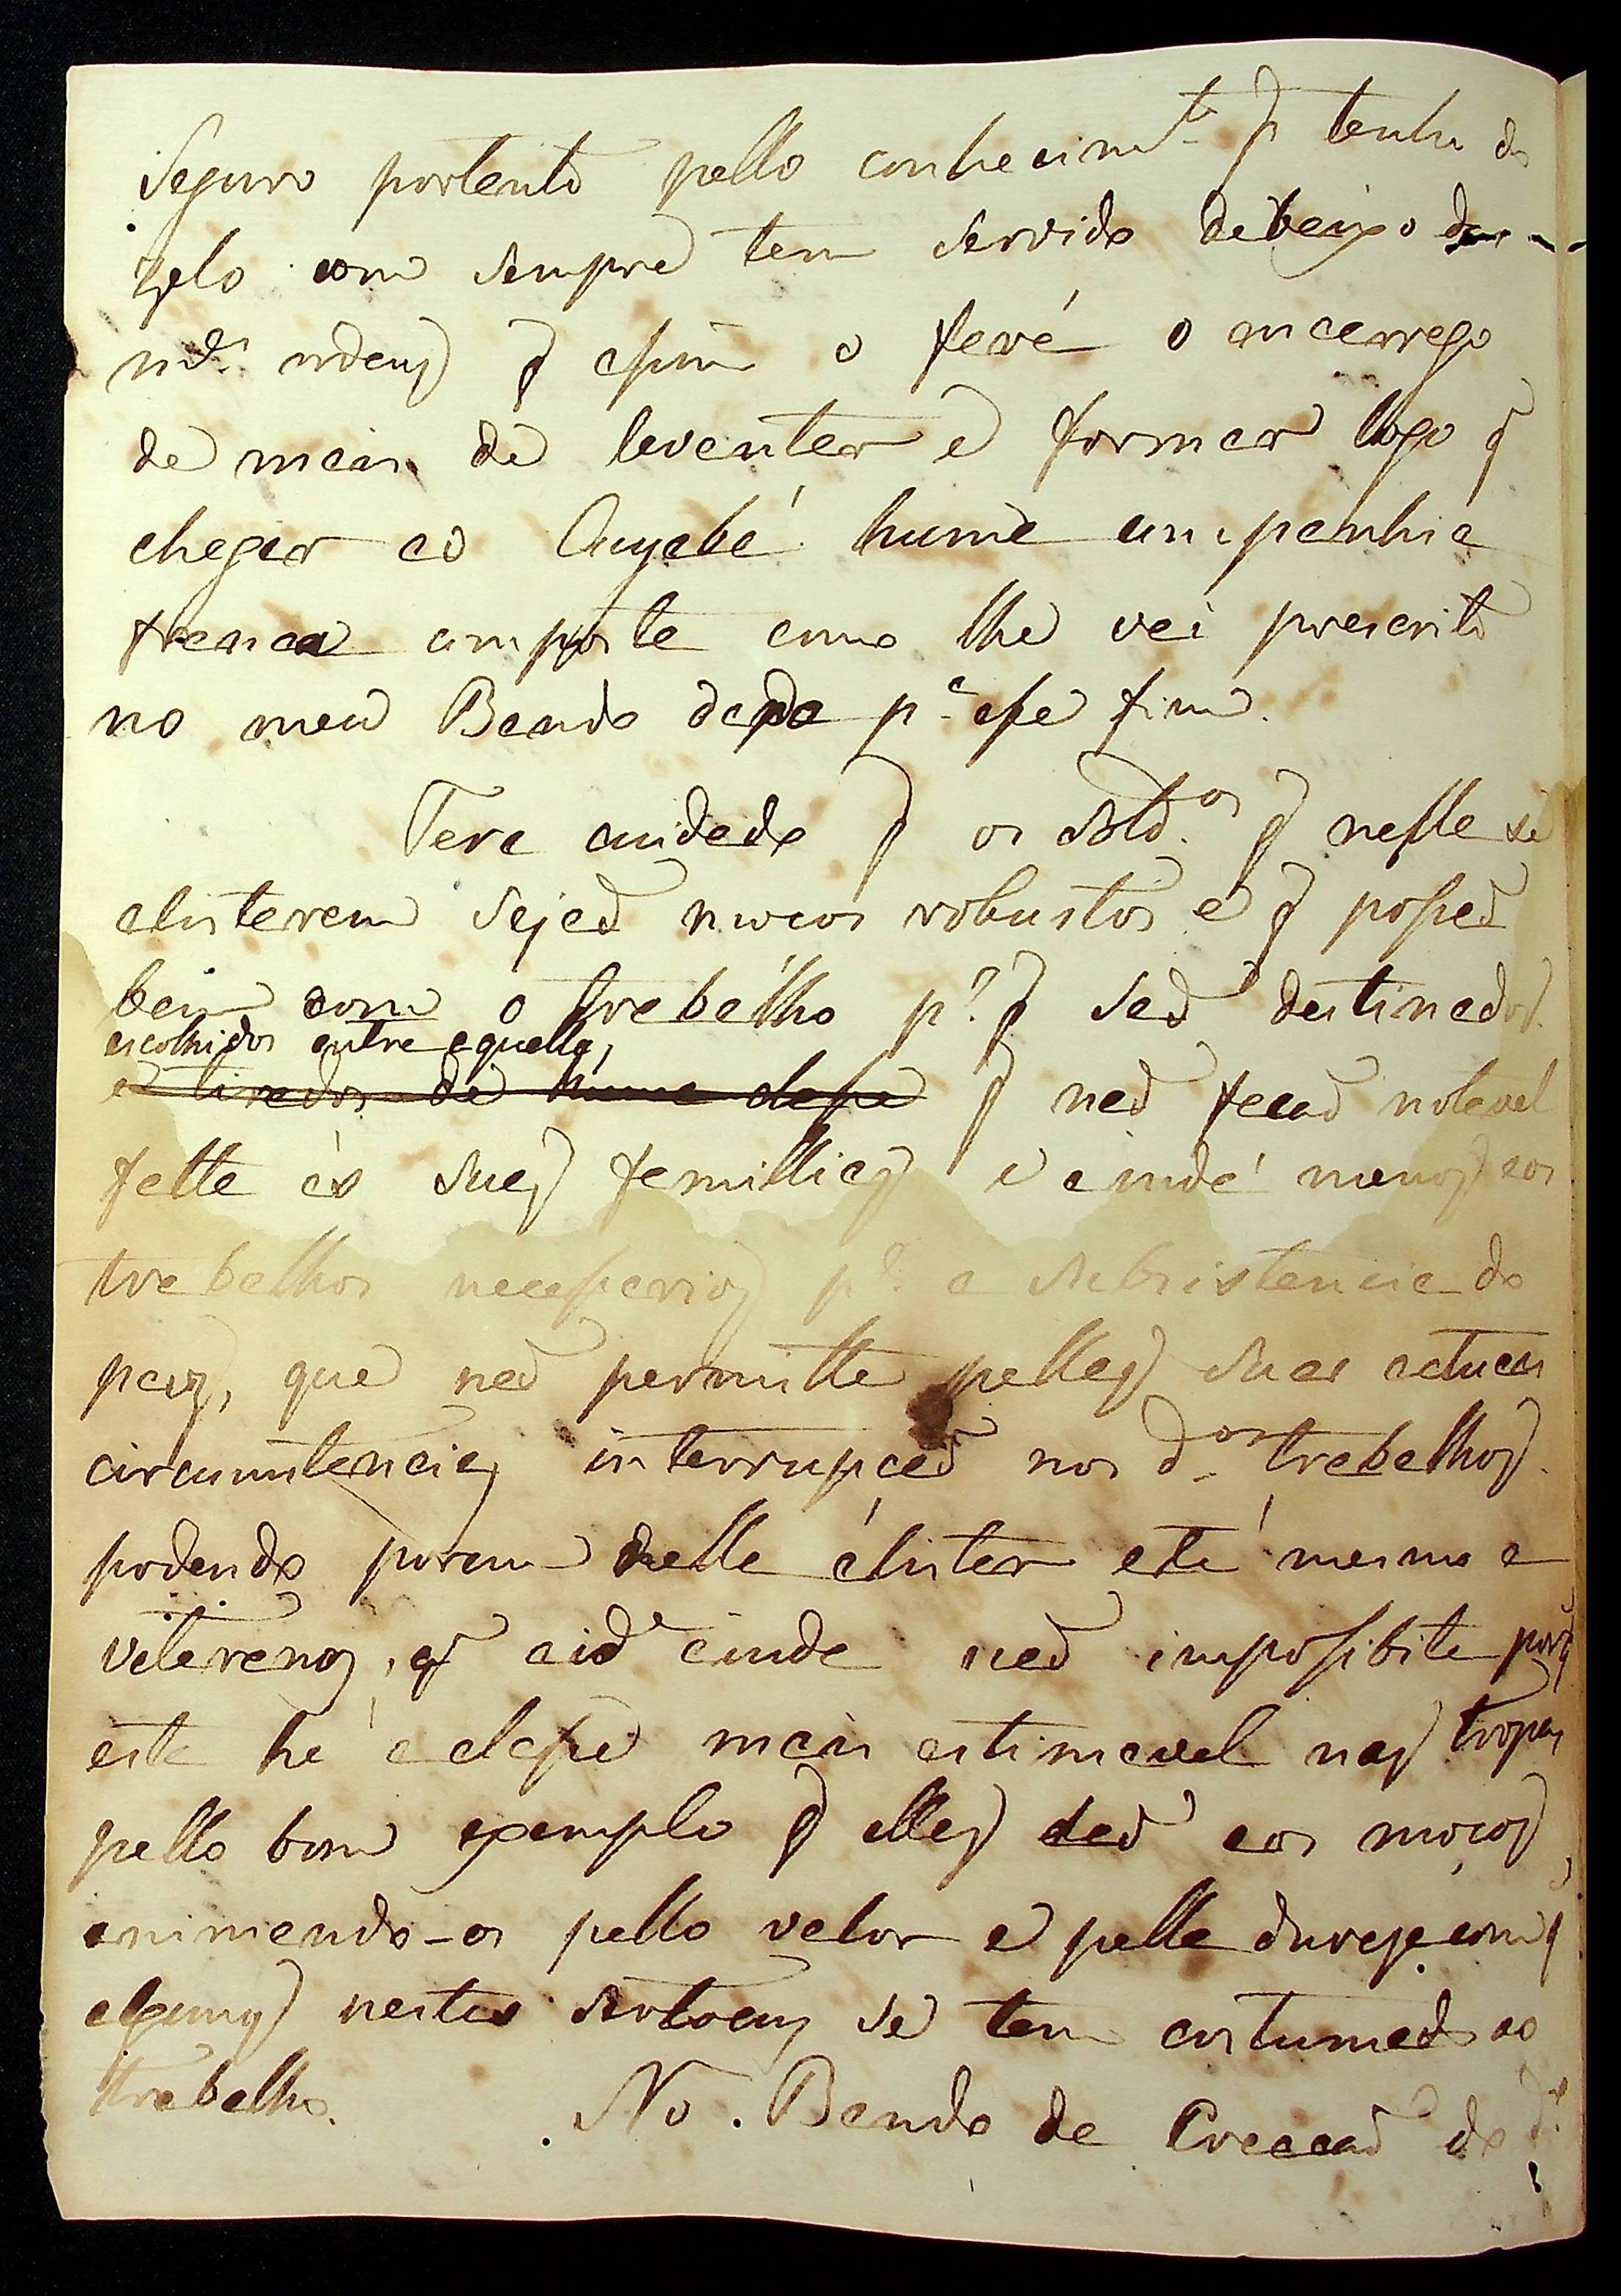 Seguro portento pello conhecim.to q̃ tenho do
zelo com sempre tem servido debaixo das
m.as ordens q̃ assim o fará o encarrego
de mais de levantar e formar logo q̃
chegar ao Cuyabá huma companhia
franca composta como lhe vai prescrito
no meu Bando dado p.a esse fim.
Terá cuidado q̃ os Sold.os q̃ nella se
alistarem Sejaõ moços robustos e q̃ possaõ
bem com o trabalho p.a q̃ saõ destinados.
escolhidos entre aquelles,
e tirados de huma classe q̃ naõ façaõ notavel
falta ás suas famillias e ainda menos aos
trabalhos necessarios p.a a subsistencia do
paiz, que naõ permitte pellas suas actuaes
circunstancias interrupçaõ nos d.os trabalhos.
podendo porem nella alistar até mesmo a
veteranos, q̃ aid.e ainda naõ impossibite porq̃
esta hé a classe mais estimavel nas tropas
pello bom exemplo q̃ elles daõ aos moços,
animando-os pello valor e pella dureza com q̃
alguns nestes Sertoens se tem costumado ao
trabalho. No Bando da Creaçaõ da d.a